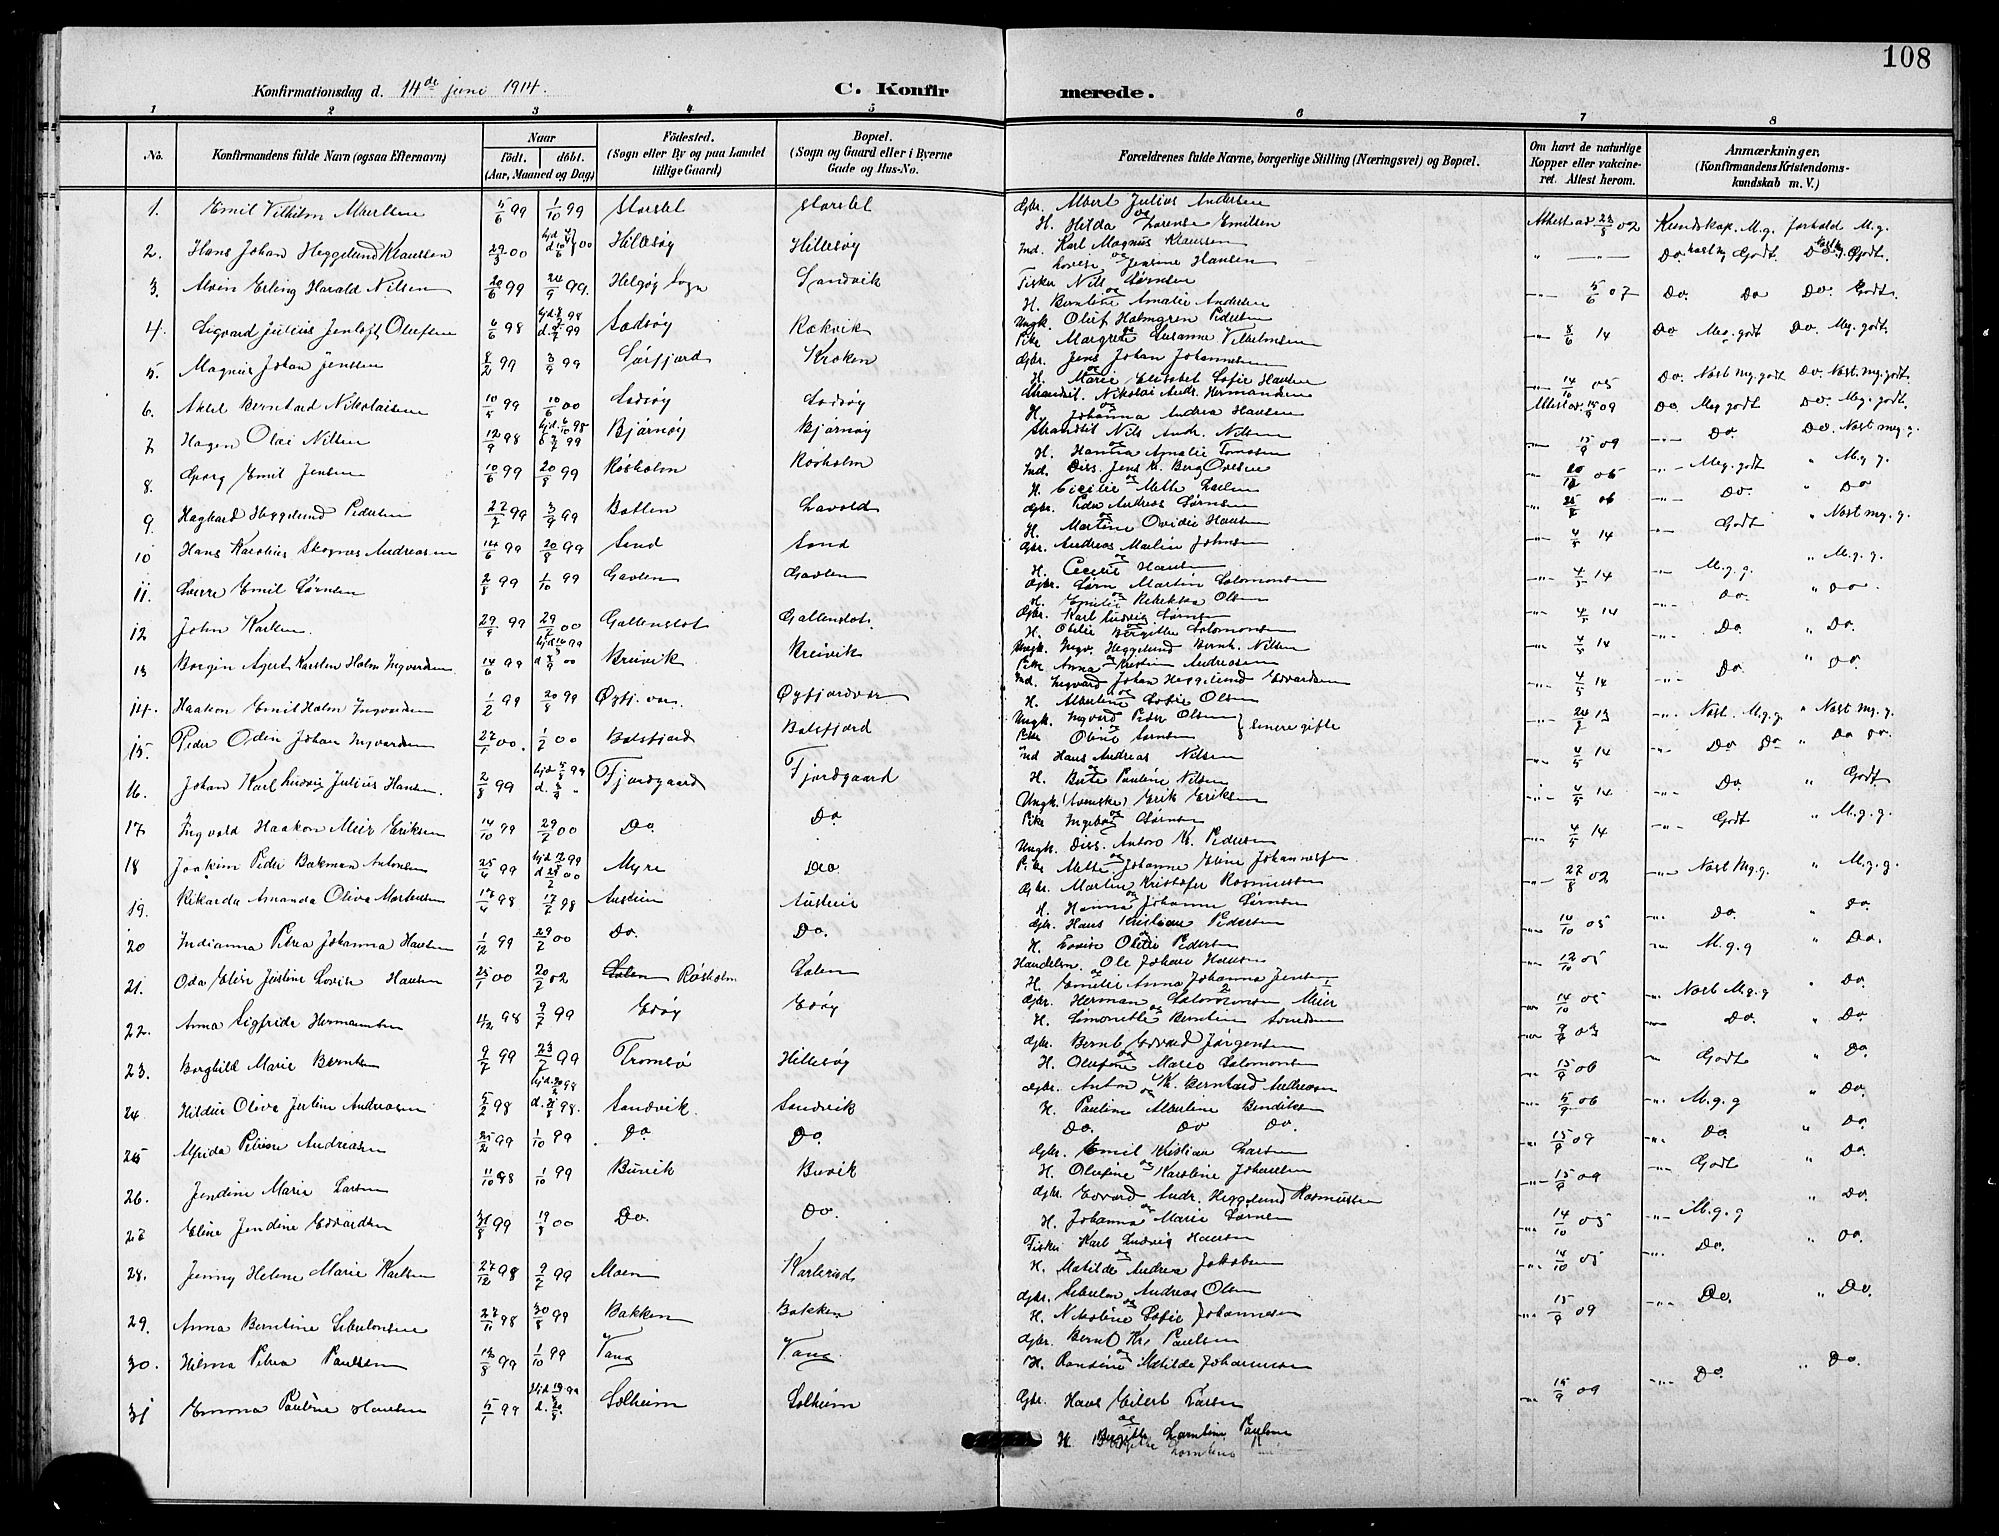 108
Konfirmationsdag d. 14de juni 1914
C. Konfirmerede.
1 2 3 4 5 6 7 8
No.
Konfirmandens fulde Navn (ogsaa Efternavn)
Naar
født. døbt.
(Aar, Maaned og Dag)
Fødested.
(Sogn eller By og paa Landet
tillige Gaard)
Bopæl.
(Sogn og Gaard eller i Byerne
Gade og Hus-No.
Forældrenes fulde Navne, borgerlige Stilling (Næringsvei) og Bopæl.
Om havt de naturlige
Kopper eller vakcine-
ret. Attest herom.
Anmærkninger.
(Konfirmandens Kristendoms-
kundskab m. V.)
1. Emil Vilhelm Albertsen 5/6 99 1/10 99 Storslet Storslet Gbr. Albert Julius Andersen
og
H. Hilda Lorense Emilsen Attest av 23/8 02 Kundskap. M.g. forhold M.g.
2. Hans Johan Heggelund Klaussen 29/3 00 Hillesøy Hillesøy Ind. Karl Magnus Klaussen
og
Lovise Jensine Hansen Do. Godt. Do. Godt.
3. Alvin Erling Harald Nilsen 20/6 99 24/9 99. Helgøy Sogn Sandvik Fisker Nils Sørnsen
H. Berntine Amalie Andersen 5/6 07 Do. Do Do. Godt.
4. Sigvard Julius Jenloft Olufsen 6/6 98 Sødsøy Rækvik Ungk. Oluf Holmgren Pedersen
og
Pike Margrete Susanna Vilhelmsen 8/6 14 Do Meg. godt Do. Meg. godt.
5. Magnus Johan Jenssen 8/2 99 3/9 99 Sørfjord Kroken Gbr. Jens Johan Johannesen
og
H. Marie Elisabet Sofie Hansen 14/10 05 Do. Næst Mg. godt Do. Næst Mg. godt.
6. Aksel Berntard Nikolaisen 10/5 99 10/6 00 Sødsøy Sødsøy Strandsit. Nikolai Andr. Hermansen
og
H. Johanna Andrea Hansen Attest av 15/9 09 Do. Meg godt Do. Meg. godt.
7 Hagen Olai Nilsen 12/9 98 Bjørnøy Bjørnøy Strandsit Nils Andr. Nilsen
og
H. Hansia Amalie Tomasen 15/9 09 Do. Næst meg. g.
8. Georg Emil Jensen 10/6 99 20/8 99 Røsholm Røsholm Ind. Diss. Jens K. Berg Olsen
og
H. Cicilie Mette Larsen 20/12 05 Meg. godt " M.g g.
9 Haghard Heggelund Pedersen 99 3/9 99 Botten Lavold Gbr. Peder Andreas Sørnsen
H. Martine Ovidie Hansen 06 Do. " Do
10 Hans Karolius Skognæs Andreasen 14/6 99 20/8 99 Sand Sand Gbr. Andreas Martin Johnsen
og
H. Cecilie Hansen 4/5 14 Godt " Næst mg. g.
11. Sverre Emil Sørnsen 2/8 99 1/10 99 Gavlen Gavlen Gbr. Sørn Martin Salomonsen
og
H. Emilie Rebekka Olsen 4/5 14 M.g. g. " M.g. g.
12 John Karlsen. 29/9 99 29/7 00 Gallenslot Gallenslot. Gbr. Karl Ludvig Sørnsen
og
H. Otelie Birgitte Salomonsen 4/5 14 Do. " Do.
13 Borgin Agert Karsten Holm Ingvardsen 14/6 99 Breivik Breivik Ungk. Ingv. Heggelund Bernh. Nilsen
Pike Anna Kristin Andreasen 4/5 14 Do. " Do.
14. Haakon Emil Holm Ingvardsen 1/2 99 20/8 99 Øyfj. vær. Øyfjordvær Ind. Ingvard Johan Heggelund Edvardsen
og
H. Albertine Sofie Olsen 4/5 14 Do. " Do.
15. Peder Odin Johan Ingvardsen 27/1 00. 1/2 00 Balsfjord Balsfjord Ungk. Ingvard Peder Olsen
og
Pike Oline Sørnsen } senere gifte 24/7 13 Næst. M.g. g " Næst Mg. g.
16. Johan Karl Ludvig Julius Hansen. 2/8 99 Fjordgaard Fjordgaard Ind Hans Andreas Nilsen
H. Berte Pauline Nilsen 4/5 14 Do Do " Do Do.
17 Ingvald Haakon Meier Eriksen 14/10 99 29/7 00 Do. Do Ungk. (svenske) Erik Eriksen
og
Pike Ingeborg Sørnsen 4/5 14 Do. " Godt
18 Joakim Peder Bakman Antonsen 25/4 99 Myre Do. Ungk. Diss. Antoro K. Pedersen
og
Pike Mette Johanne Eline Johannessen 4/5 14 Godt " M.g. g.
19. Rikarda Amanda Oliva Martinsen 17/4 98 17/7 98 Austein Austein Gbr. Martin Kristofer Rasmussen
og
H. Hanna Johanne Sørnsen 27/8 02 Næst Mg.g. " M.g. g.
20 Indianna Petra Johanna Hansen 1/12 99 29/7 00 Do. Do. Gbr. Hans Kristian Pedersen
H. Lovise Otelie Pedersen 14/10 05 Do. " Do.
21. Oda Elise Justine Lovise Hansen 25/1 00 20/7 02 Solen Røsholm Solen Handelsm. Ole Johan Hansen
og
H. Emilie Anna Johanna Jensen 12/10 05 M.g. g " Do.
22. Anna Sigfride Hermansen 98 9/7 99 Edøy Edøy Gbr. Herman Salomonsen Meier
og
H. Simonette Berntine Svendsen 14/10 05 Næst M.g.g " Do.
23. Borghild Marie Berntsen 9/7 99 23/7 99 Tromsø Hillesøy Gbr. Bernt Edvard Jørgensen
og
H. Olufine Marie Salomonsen Do. " Do.
24 Hildur Oliva Justine Andreasen 5/2 98 Sandvik. Sandvik Gbr. Anton K. Berntard Andreasen
og
H. Pauline Albertine Bendiksen 15/9 06 Godt " Do.
25 Alfrida Petrine Andreasen 25/2 99 1/10 99 Do Do. Do. Do Do. 5/9 06 M.g. g " Do.
26. Jendine Marie Larsen 11/10 98 1/10 99 Buvik Buvik Gbr. Emil Kristian Larsen
og
H. Olufine Karoline Johansen 15/9 09 Do. " Do.
27 Eline Jendine Edvardsen 31/8 99 19/8 00 Do. Do. Gbr. Edvard Andr. Heggelund Rasmussen
og
H. Johanna Marie Sørnsen 15/9 09 Godt " Do.
28. Jenny Helene Marie Karlsen 27/12 98 9/7 99 Moen Karlsrud Fisker Karl Ludvig Hansen
og
H. Matilde Andrea Jakobsen 14/10 05 M.g. g " Do.
29. Anna Berntine Sibulonsen 27/11 98 30/8 99 Bakken Bakken Gbr. Sibulon Andreas Olsen
og
H. Nikoline Sofie Johannesen 14/10 05 Do. " Do.
30. Hilma Petra Paulsen 13/8 99 1/10 99 Vang Vang. Gbr. Bernt Kr. Paulsen
og
H. Ransine Matilde Johannesen 15/9 09 Do. " Do.
31 Emma Pauline Hansen 5/1 99 Solheim Solheim Gbr. Hans Eilert Larsen
og
H. Birgitte Larntine Paulsen 15/9 09 Do. " Do.